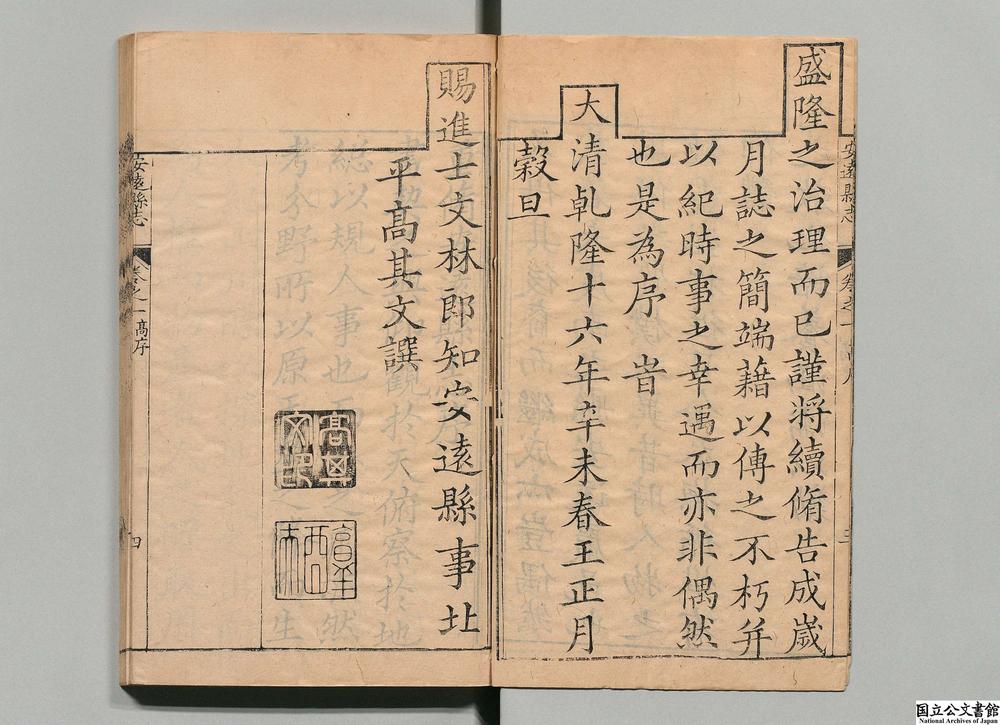 安遠縣志
卷之一
三
盛隆之治理而已謹將續脩告成歲
月誌之簡端藉以傳之不朽并
以紀時事之幸遇而亦非偶然
也是為序旹
大清乹隆十六年辛未春王正月
穀旦
賜進士文林郎知安遠縣事北
平高其文譔
高其文印
安遠縣志
卷之一高序
四
国立公文書館
National Archives of Japan